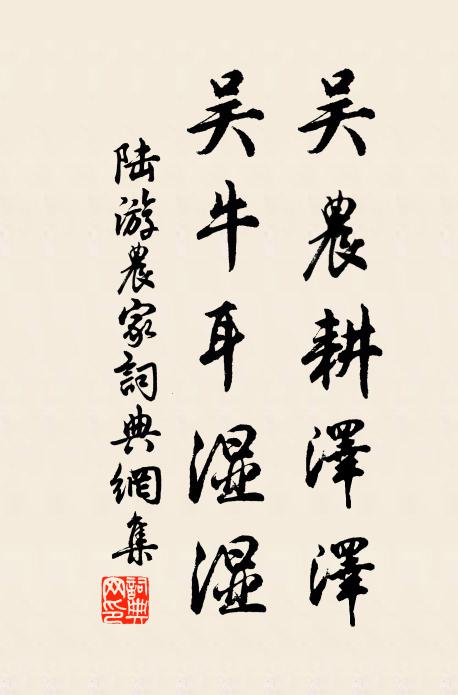 吴農耕澤澤
吴牛耳湿湿
陆游農家詞典網集
詞典网印